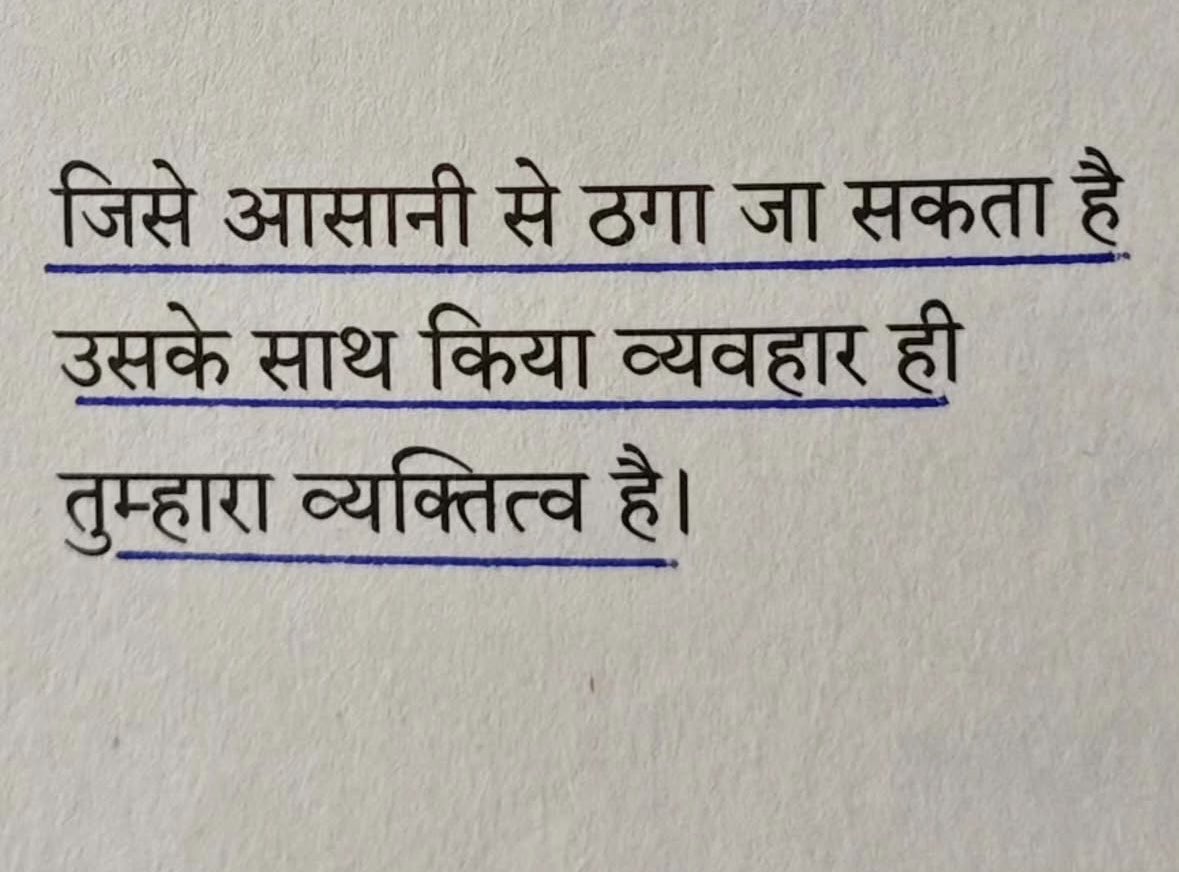 जिसे आसानी से ठगा जा सकता है
उसके साथ किया व्यवहार ही
तुम्हारा व्यक्तित्व है।